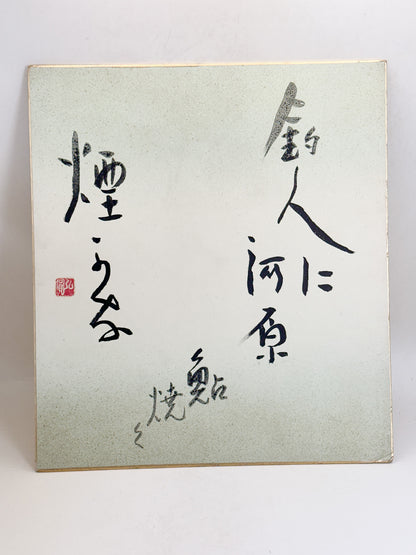 釣人に
河原
鮎
焼く
煙かな